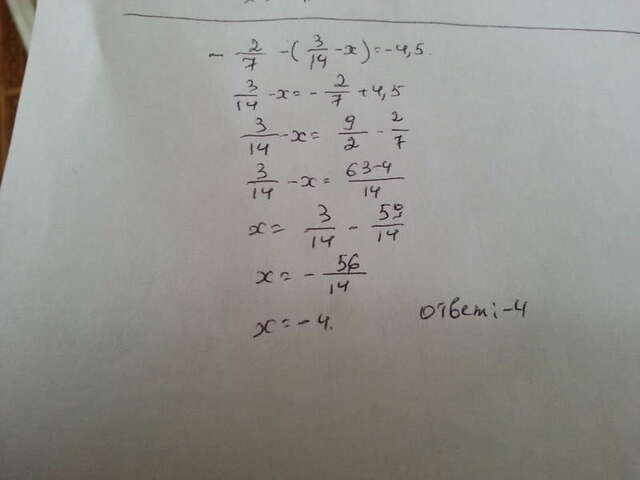 - 2/7 - (3/14 - x) = -4,5.
3/14 - x = - 2/7 + 4,5
3/14 - x = 9/2 - 2/7
3/14 - x = 63-4/14
x = 3/14 - 59/14
x = - 56/14
x = -4. ответ: -4